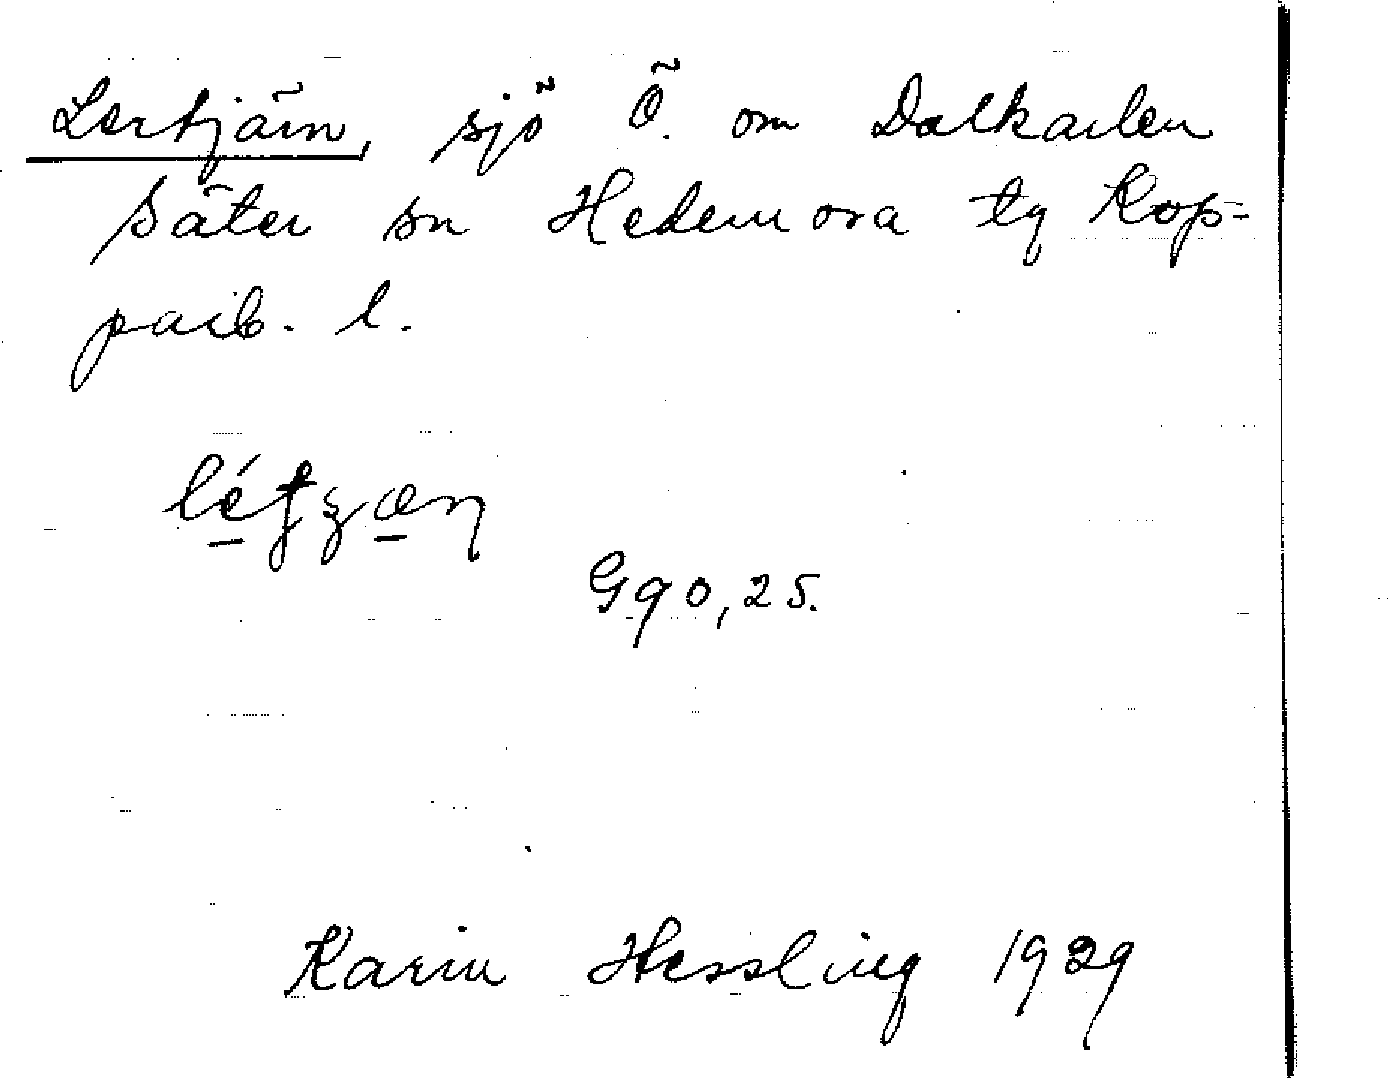 Lertjärn, sjö Ö. om Dalkarlen
Säter sn Hedemora tg Kop-
parb. l.
G90,25.
Karin Hessling 1929